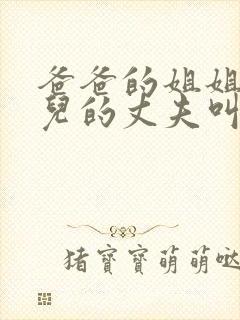 爸爸的姐姐
兒的丈夫叫
猪寶寶萌萌哒